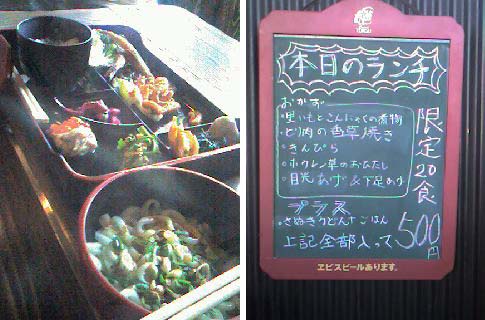 本日のランチ
おかず
・里いもとこんにゃくの煮物
・とり肉の香草焼き
・きんぴら
・ホウレン草のおひたし
・目光あげ&下足あげ
プラス
・さぬきうどん+ごはん
上記全部入って500円
限定20食
ヱビスビールあります。